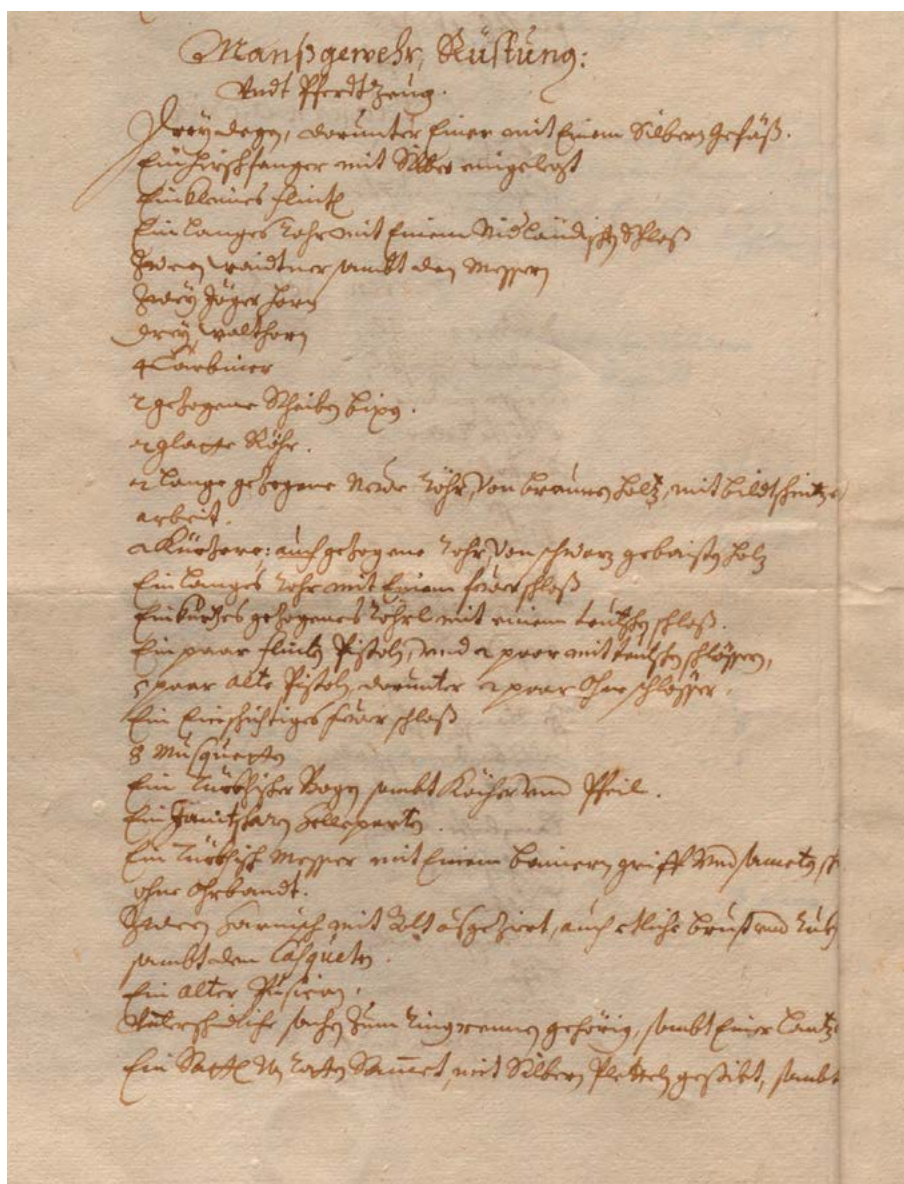 Manßgewehr, Rüstung:
Vndt Pferdt Zeug.
Drey degen, darunter Einer mit Einem Silbern gefäß.
Ein hirschfanger mit Silber eingelegt
Ein kleines flintl
Ein langes rohr mit Einem Nidländischen Schloß
Zween waidtner sambt den Messern
Zwey Jäger horn
drey walthorn
4 Carbiner
2 gezogene Scheiben bixn.
2 glatte Röhr.
2 lange gezogene Neue röhr, Von braunen holtz, mit bildtschnitzer
arbeit.
2 Kürtzere: auch gezogene rohr Von schwarz gebaisten holz
Ein langes rohr mit Einem feuer schloß
Ein kurtzes gezogenes röhrl mit einem teutschen schloß.
Ein paar flinten Pistoln, und 2 paar mit teutschen schlössern,
5 paar alte Pistoln, darunter 2 paar Ohne schlösser.
Ein Einschichtiges feuer schloß
8 Musqueten
Ein Türckhischer Bogen sambt Köcher vnd Pfeil.
Ein Janitscharn helleparten.
Ein Türckhisch Messer mit Einem beinern griff Vnd sameten
ohne Ohrbandt.
Zween harnisch mit Golt außgeziert, auch etliche brust vnd ruck
sambt den Casqueten.
Ein alter Pusican.
Vnterschidliche sachen Zum ringrennen gehörig, sambt Einer lantz
Ein Sattl Von roten Sammet, mit Silbern Pletteln gestikt, sambt